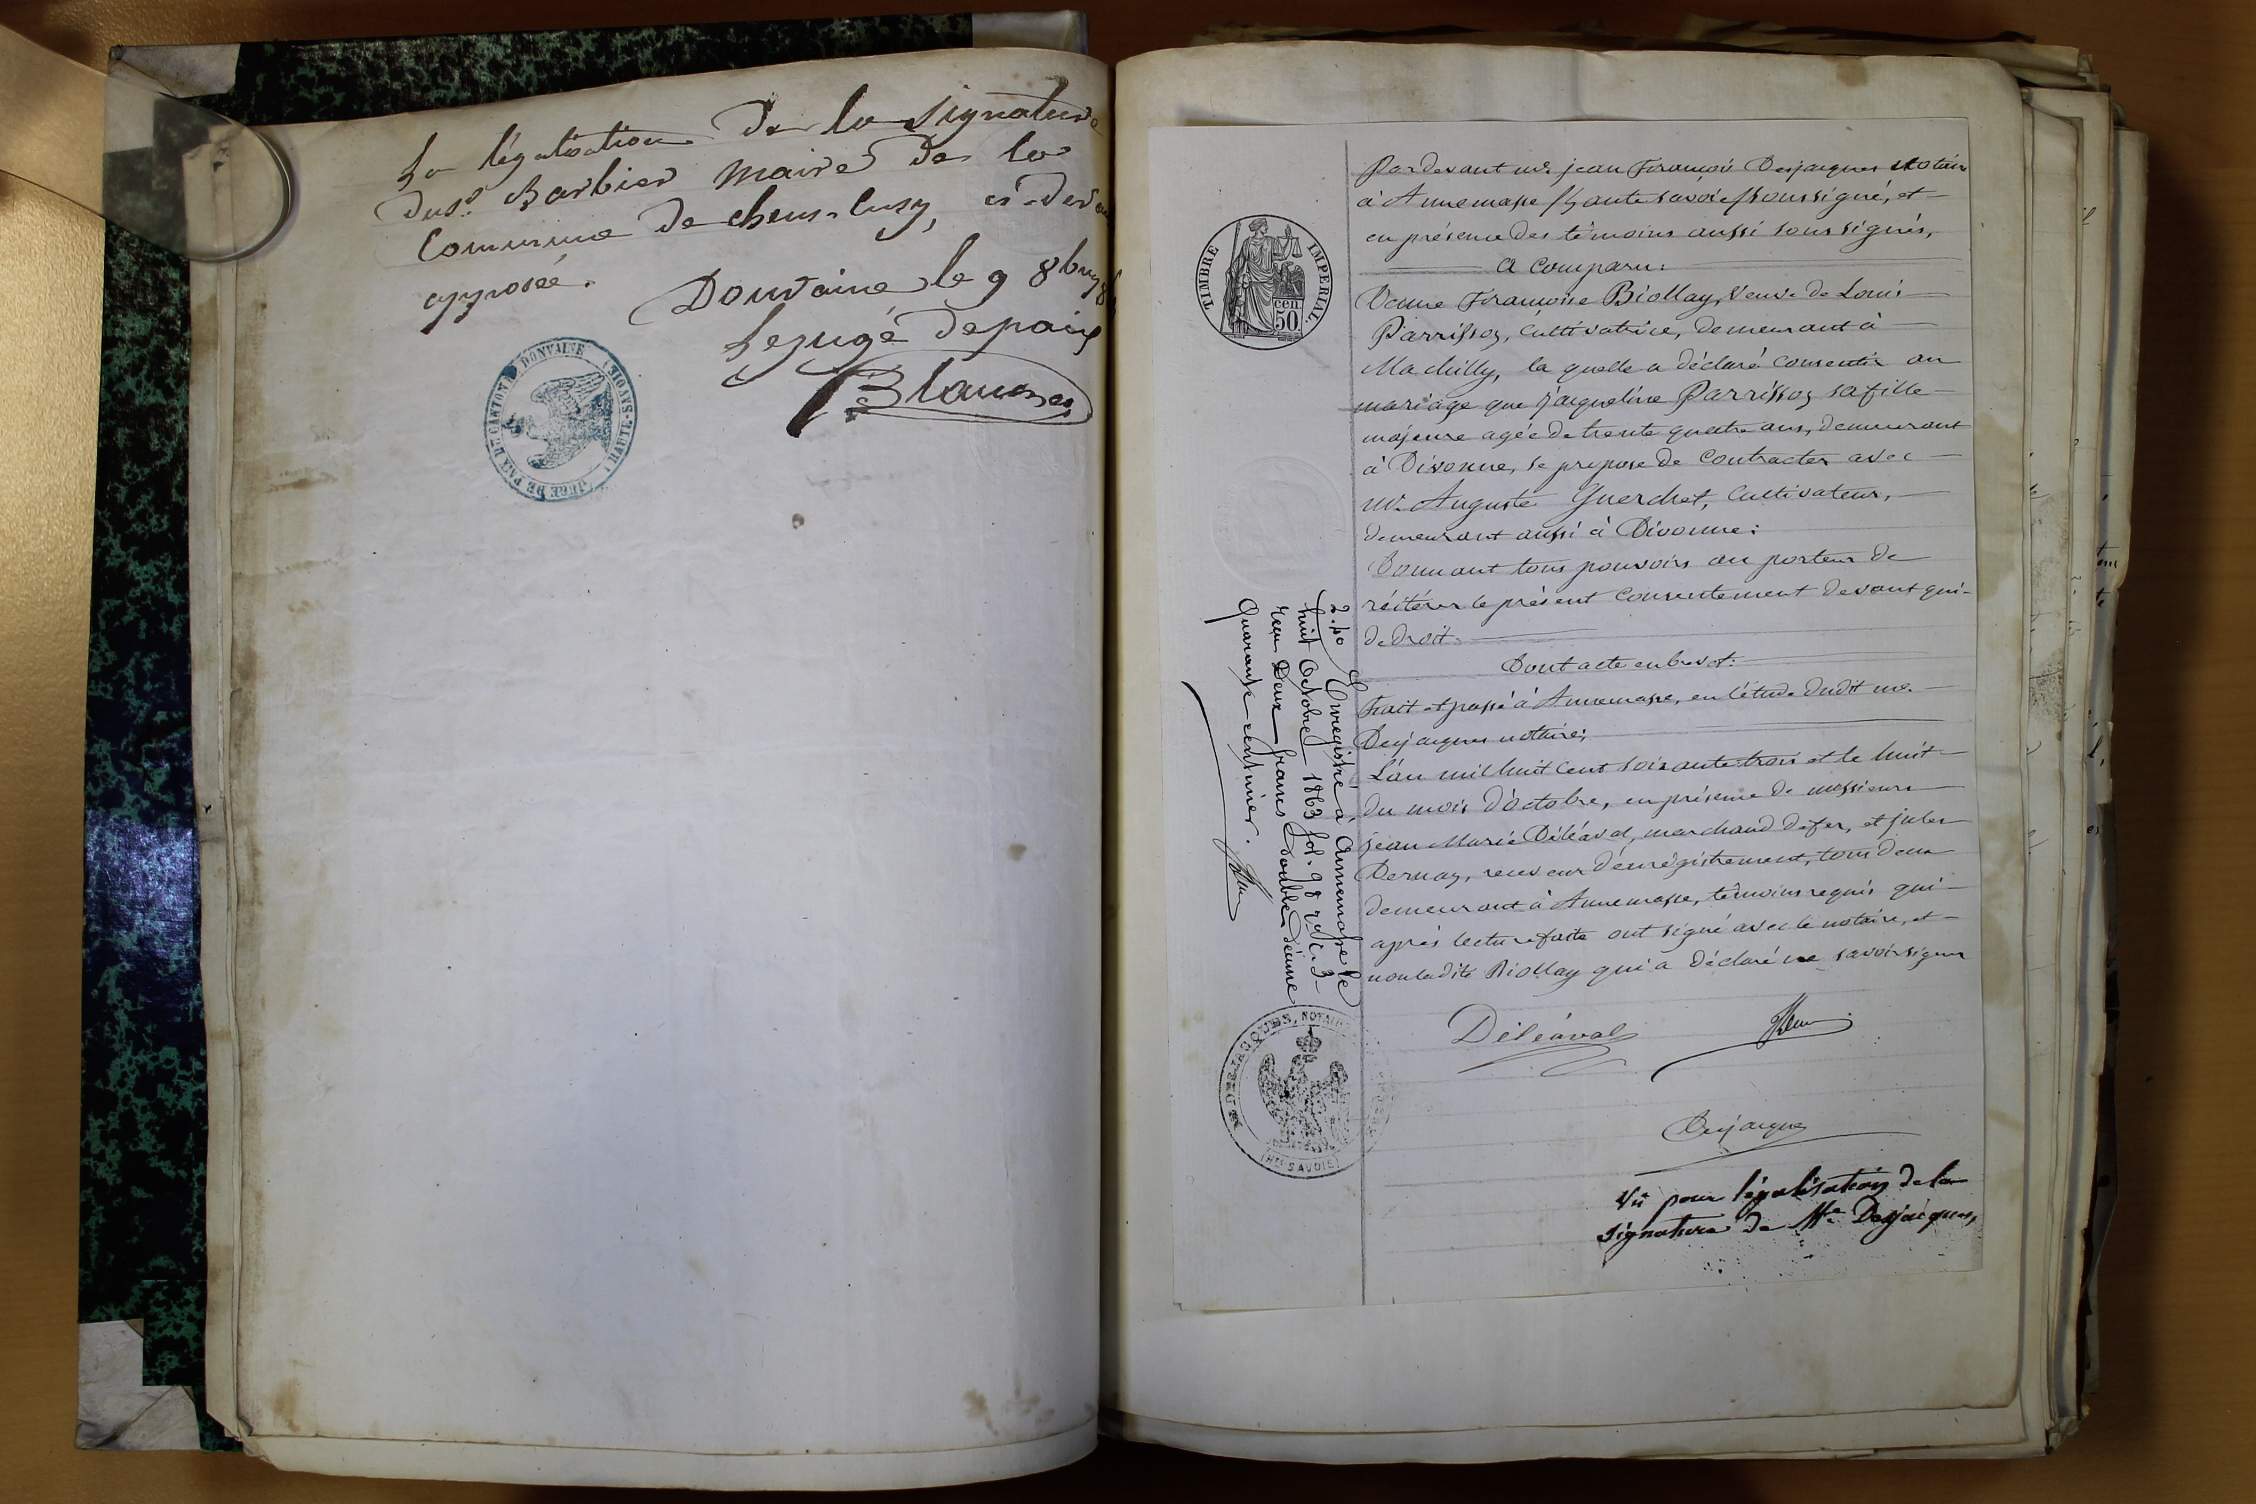 La légalisation de la signature
du sr. Barbier maire de la
Commune de chens-cusy, ci-devant
apposée.
Douvaine le 9 8bre
Le juge de paix
JUGE DE PAIX DU CANTON DE DONVAINE
(HAUTE-SAVOIE)
TIMBRE IMPERIAL.
50 cen
Pardevant me. jean François Desjacques Notaire
à Annemasse /haute savoie/ soussigné, et
en présence des témoins aussi soussignés,
a comparu:
Dame Françoise Biollay, Veuve de Louis
Parrissoz, Cultivatrice, demeurant à
Machilly, la quelle a déclaré consentir au
mariage que jacqueline Parrissoz sa fille
majeure agée de trente quatre ans, demeurant
à Divonne, se propose de contracter avec
mr. Auguste Guerchet, Cultivateur,
demeurant aussi à Divonne:
Donnant tous pouvoirs au porteur de
réitérer le présent consentement devant qui
de droit.
Dont acte en brevet:
Fait et passé à Annemasse, en l'étude dudit me.
Desjacques notaire;
L'an mil huit cent soixante trois et le huit
du mois d'octobre, en présence de messieurs
jean Marie Déléaval, marchand de fer, et jules
Dernaz, receveur d'enrégistrement, tous deux
demeurant à Annemasse, témoins requis qui
après lecture faite ont signé avec le notaire, et
non ladite Biollay qui a déclaré ne savoir signer
2.40 Enregistré à Annemasse le
huit Octobre 1863 fol. 98 ro c. 3
reçu Deux francs double décime
Quarante centimes.
Déléaval
Desjacques
Me DESJACQUES, NOTAIRE
(Hte SAVOIE)
Vu pour légalisation de la
signature de Me Desjacques,